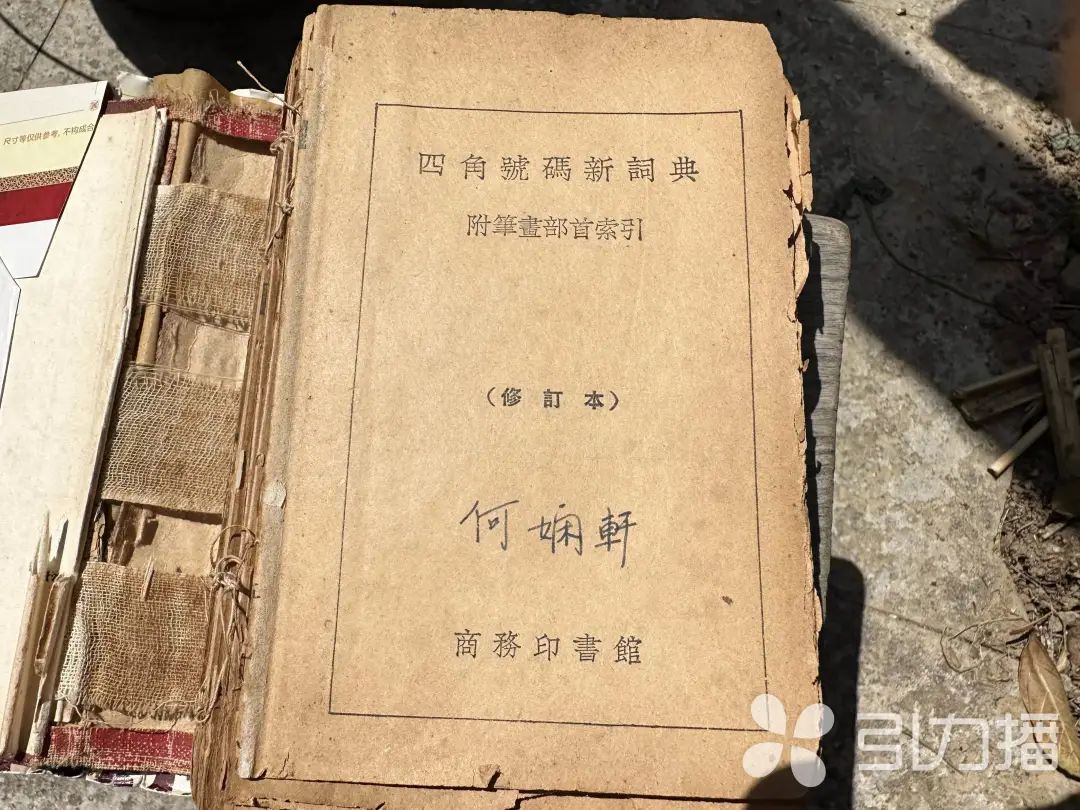 尺寸等仅供参考,不构成合
四角號碼新詞典
附筆畫部首索引
(修訂本)
何娴軒
商務印書館
引力播